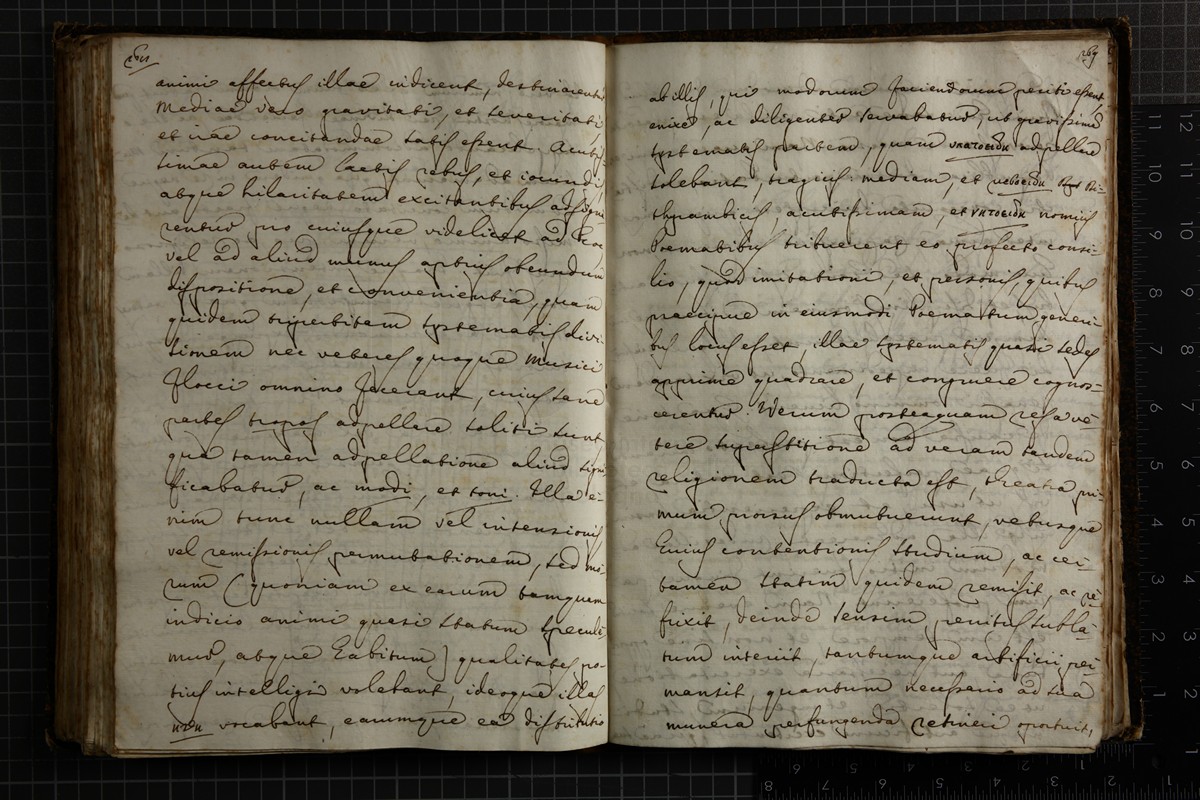 animi affectus illae indicent, destinarent
Mediae vero gravitati, et severitati
et irae concitandae satis essent. Acutis-
simae autem laetis rebus, et iocundis
atque hilaritatem excitantibus adsigna
rentur pro cuiusque videlicet ad hoc
vel ad aliud munus aptius obeundum
dispositione, et convenientia, quam
quidem tripertitam systematis divi-
sionem nec veteres quoque Musici
flocci omnino fecerant, cuius sane
partes tropos adpellare soliti sunt
qua tamen adpellatione aliud signi
ficabatur, ac modi, et toni. Illa e-
nim tunc nullam vel intensionis
vel remissionis permutationem, sed mo-
rum (quoniam ex earum tamquam
indicio animi quasi statum specula
mur, atque habitum) qualitates po-
tius intelligi volebant, ideoque illas
ηϑη vocabant, earumque ea distributio
269
ab illis, qui modorum faciendorum periti essent
enixe, ac diligenter servabatur, ut gravissimam
systematis partem, quam υπατοειδη adpellare
solebant, tragicis: mediam, et μεσοειδη Di-
thyrambicis, acutissimam, et νητοειδη nomicis
Poematibus tribuerent eo profecto consi-
lio, quod imitationi, et personis, quibus
praecipue in eiusmodi Poematum generi-
bus locus esset, illae systematis quasi sedes
apprime quadrare, et congruere cognos-
cerentur. Verum posteaquam res a ve-
tere superstitione ad veram tandem
religionem traducta est, theatra pri-
mum prorsus obmutuerunt, vetusque
huius contentionis studium, ac cer-
tamen statim quidem remisit, ac re-
frixit, deinde sensim penitus subla-
tum interiit, tantumque artificii per-
mansit, quantum necessario ad sua
munera perfungenda retineri oportuit,